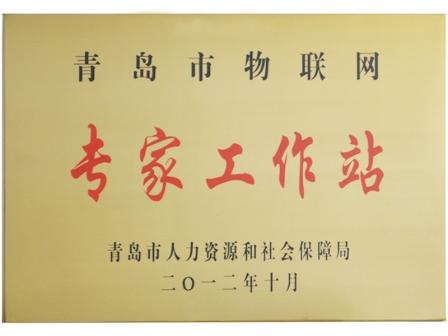 青岛市物联网
专家工作站
青岛市人力资源和社会保障局
二〇一二年十月